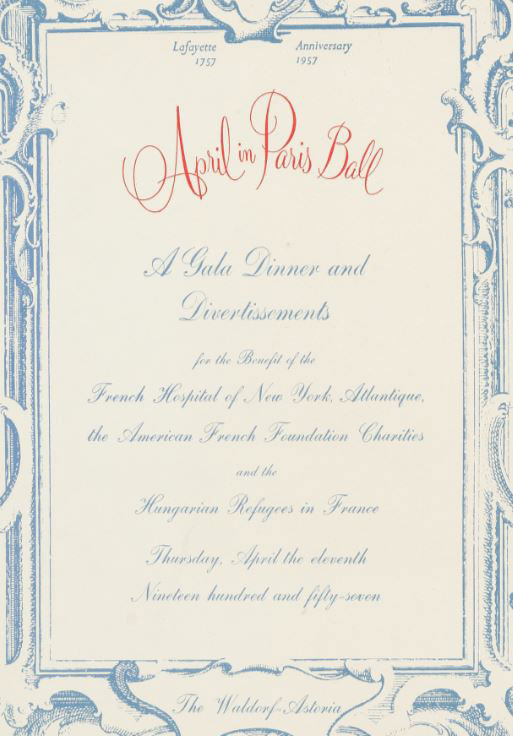 Lafayette Anniversary
1757 1957
April in Paris Ball
A Gala Dinner and
Divertissements
for the Benefit of the
French Hospital of New York, Atlantique,
the American French Foundation Charities
and the
Hungarian Refugees in France
Thursday, April the eleventh
Nineteen hundred and fifty-seven
The Waldorf-Astoria